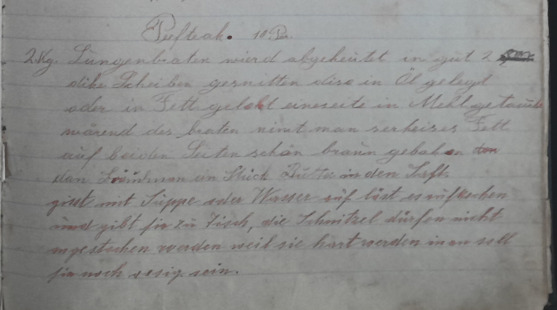 Pufteak. 10 P.
2 Kg. Lungenbraten wird abgeheitet in gut 2
dike Scheiben gesnitten dise in Öl gelegd
oder in Fett eineseite in Mehl getaucht
wärend des braten nimt man serheises Fett
auf beiden Seiten schön braun gebaken
dan man ein Stück Butter in den Saft.
gist mit Suppe oder Wasser auf läst es aufkochen
und gibt sie zu Tisch, die Schnitzel dürfen nicht
angestochen werden weil sie hart werden inen soll
sie noch resig sein.